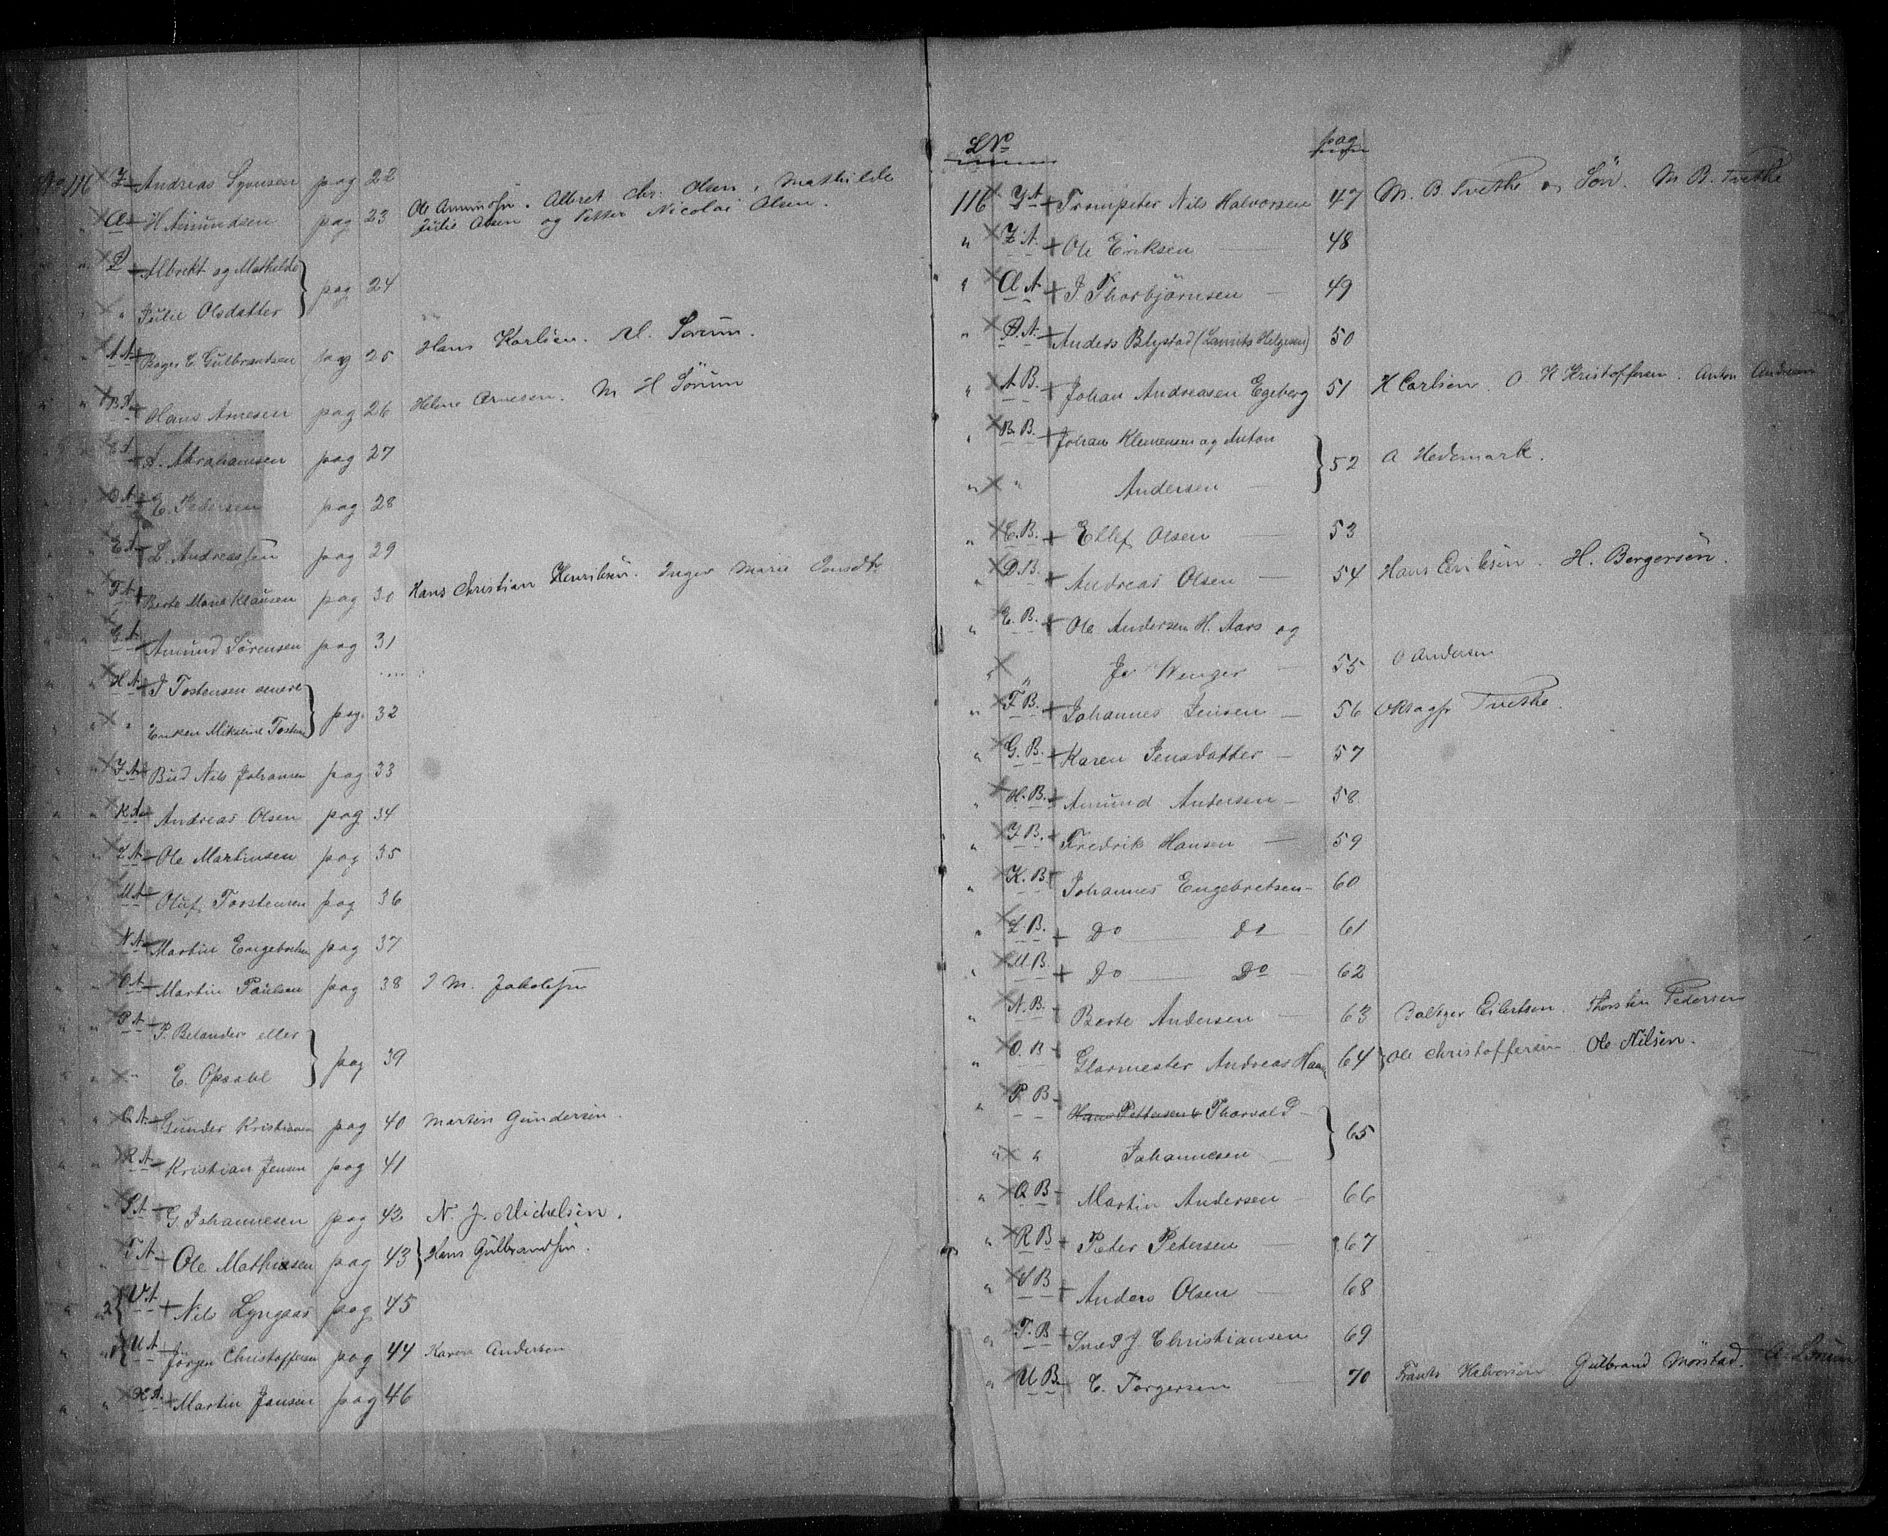 No 116 Z Andreas Svensen pag 22
" Æ H Amundsen pag 23 Ole Amundsen. Albret Chr. Olsen, Mathilde
Julie Olsen og Petter Nicolai Olsen.
" Ø Albrekt og Mathilde } pag 24
" " Julie Olsdatter
" A A Bager E. Gulbrandsen pag 25 Hans Karlsen. M. Sørum.
" B A Hans Arnesen pag 26 Helene Arnesen. M H Sörum
A. Abrahamsen pag 27
" D A E. Pedersen pag 28
" E A L. Andreassen pag 29
" F A Berte Maria Klausen pag 30 Hans Christian Henriksen. Inger Marie
" G A Amund Sörensen pag 31
" H A J Tostensen senere } pag. 32
" " Enken Mikkeline Tosten
" J A Bud Nils Johansen pag 33
" K A Andreas Olsen pag 34
" L A Ole Martinsen pag 35
" M A Oluf Torstensen pag 36
" N A Martin Engebretsen pag 37
" O A Martin Paulsen pag 38 J M. Jakobsen
" P A P. Belander eller } pag 39
" " E. Opsahl
" Q A Gunder Kristiansen pag 40 Martin Gundersen.
" R A Kristian Jensen pag 41
" S A G. Johannesen pag 42 N. J. Michelsen.
" T A Ole Mathiesen pag 43 } Hans Gulbrandsen.
" 2 { V A Nils Lyngaas pag 45
" 1 { U A Jörgen Christoffersen pag 44 Karen Andersen
" X A Martin Jansen pag 46
L No pag
116 Y A Trompeter Nils Halvorsen 47 M. B. Tvethe og Sön. M B. Tvethe
" Z A. Ole Eriksen 48
" Æ A J. Thorbjörnsen 49
" Ø. A. Anders Blystad (Laurits Helgesen) 50
" A B. Johan Andreasen Egeberg 51 H Carlsen. O H Kristoffersen. Anton Andersen
" B. B. Johan Klemensen og Anton } 52 A Hedemark.
" " Andersen
" C. B. Ellef Olsen 53
" D. B. Andreas Olsen 54 Hans Eriksen. H. Bergersen.
" E. B. Ole Andersen H. Aars og
" Jo Wenger 55 O Andersen
" F B. Johannes Jensen 56 Tvethe.
" G. B. Karen Jensdatter 57
" H. B. Amund Andersen 58
" J B. Fredrik Hansen 59
" K. B. Johannes Engebretsen 60
" L B. Do Do 61
" M B. Do Do 62
" N. B. Berte Andersen 63 Eilertsen. Thorsten Pedersen
" O. B Glarmester Andreas Haa 64 } Ole Christoffersen Ole Nilsen.
" P. B Hans Pettersen & Thorvald } 65
" " Johannesen
" Q B Martin Andersen 66
" R B Peter Petersen 67
" S B Anders Olsen 68
" T. B Sned J. Christiansen 69
" U B. E. Torgersen 70 Frants Halvorsen Gulbrand Mörstad. A. Sörum